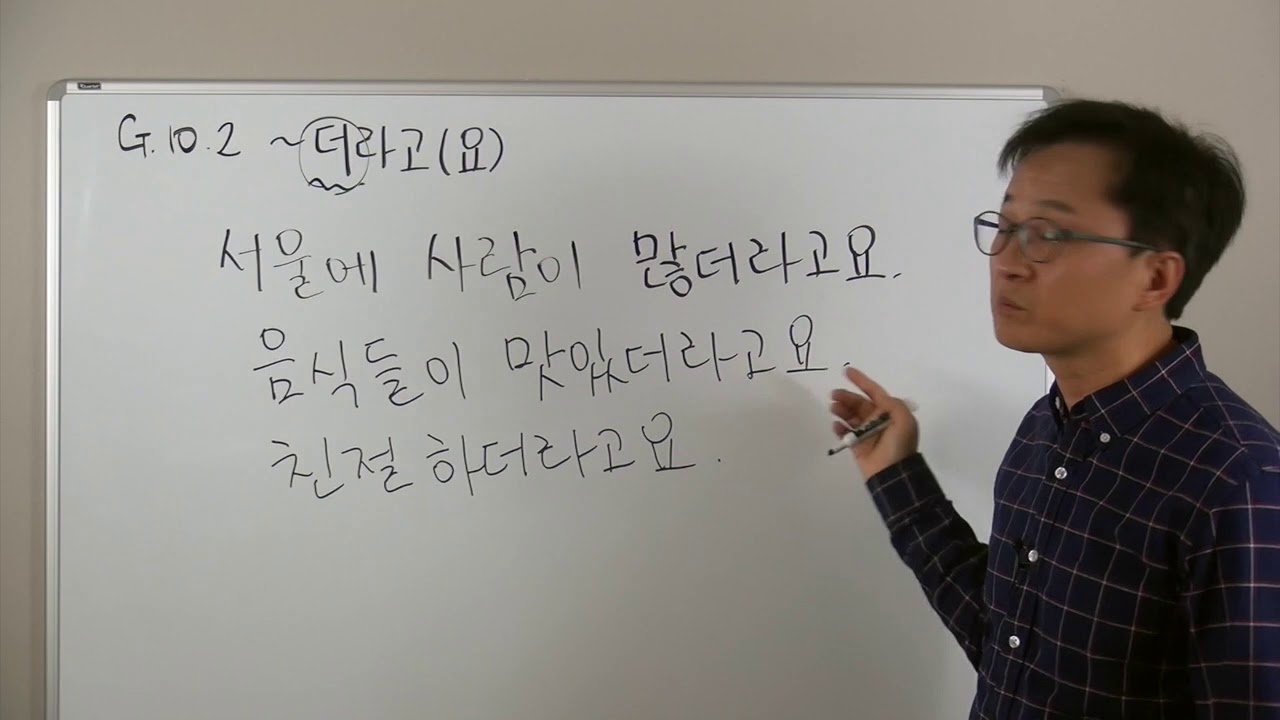 G.10.2 ~더라고(요)
서울에 사람이 많더라고요.
음식들이 맛있더라고요.
친절하더라고요.